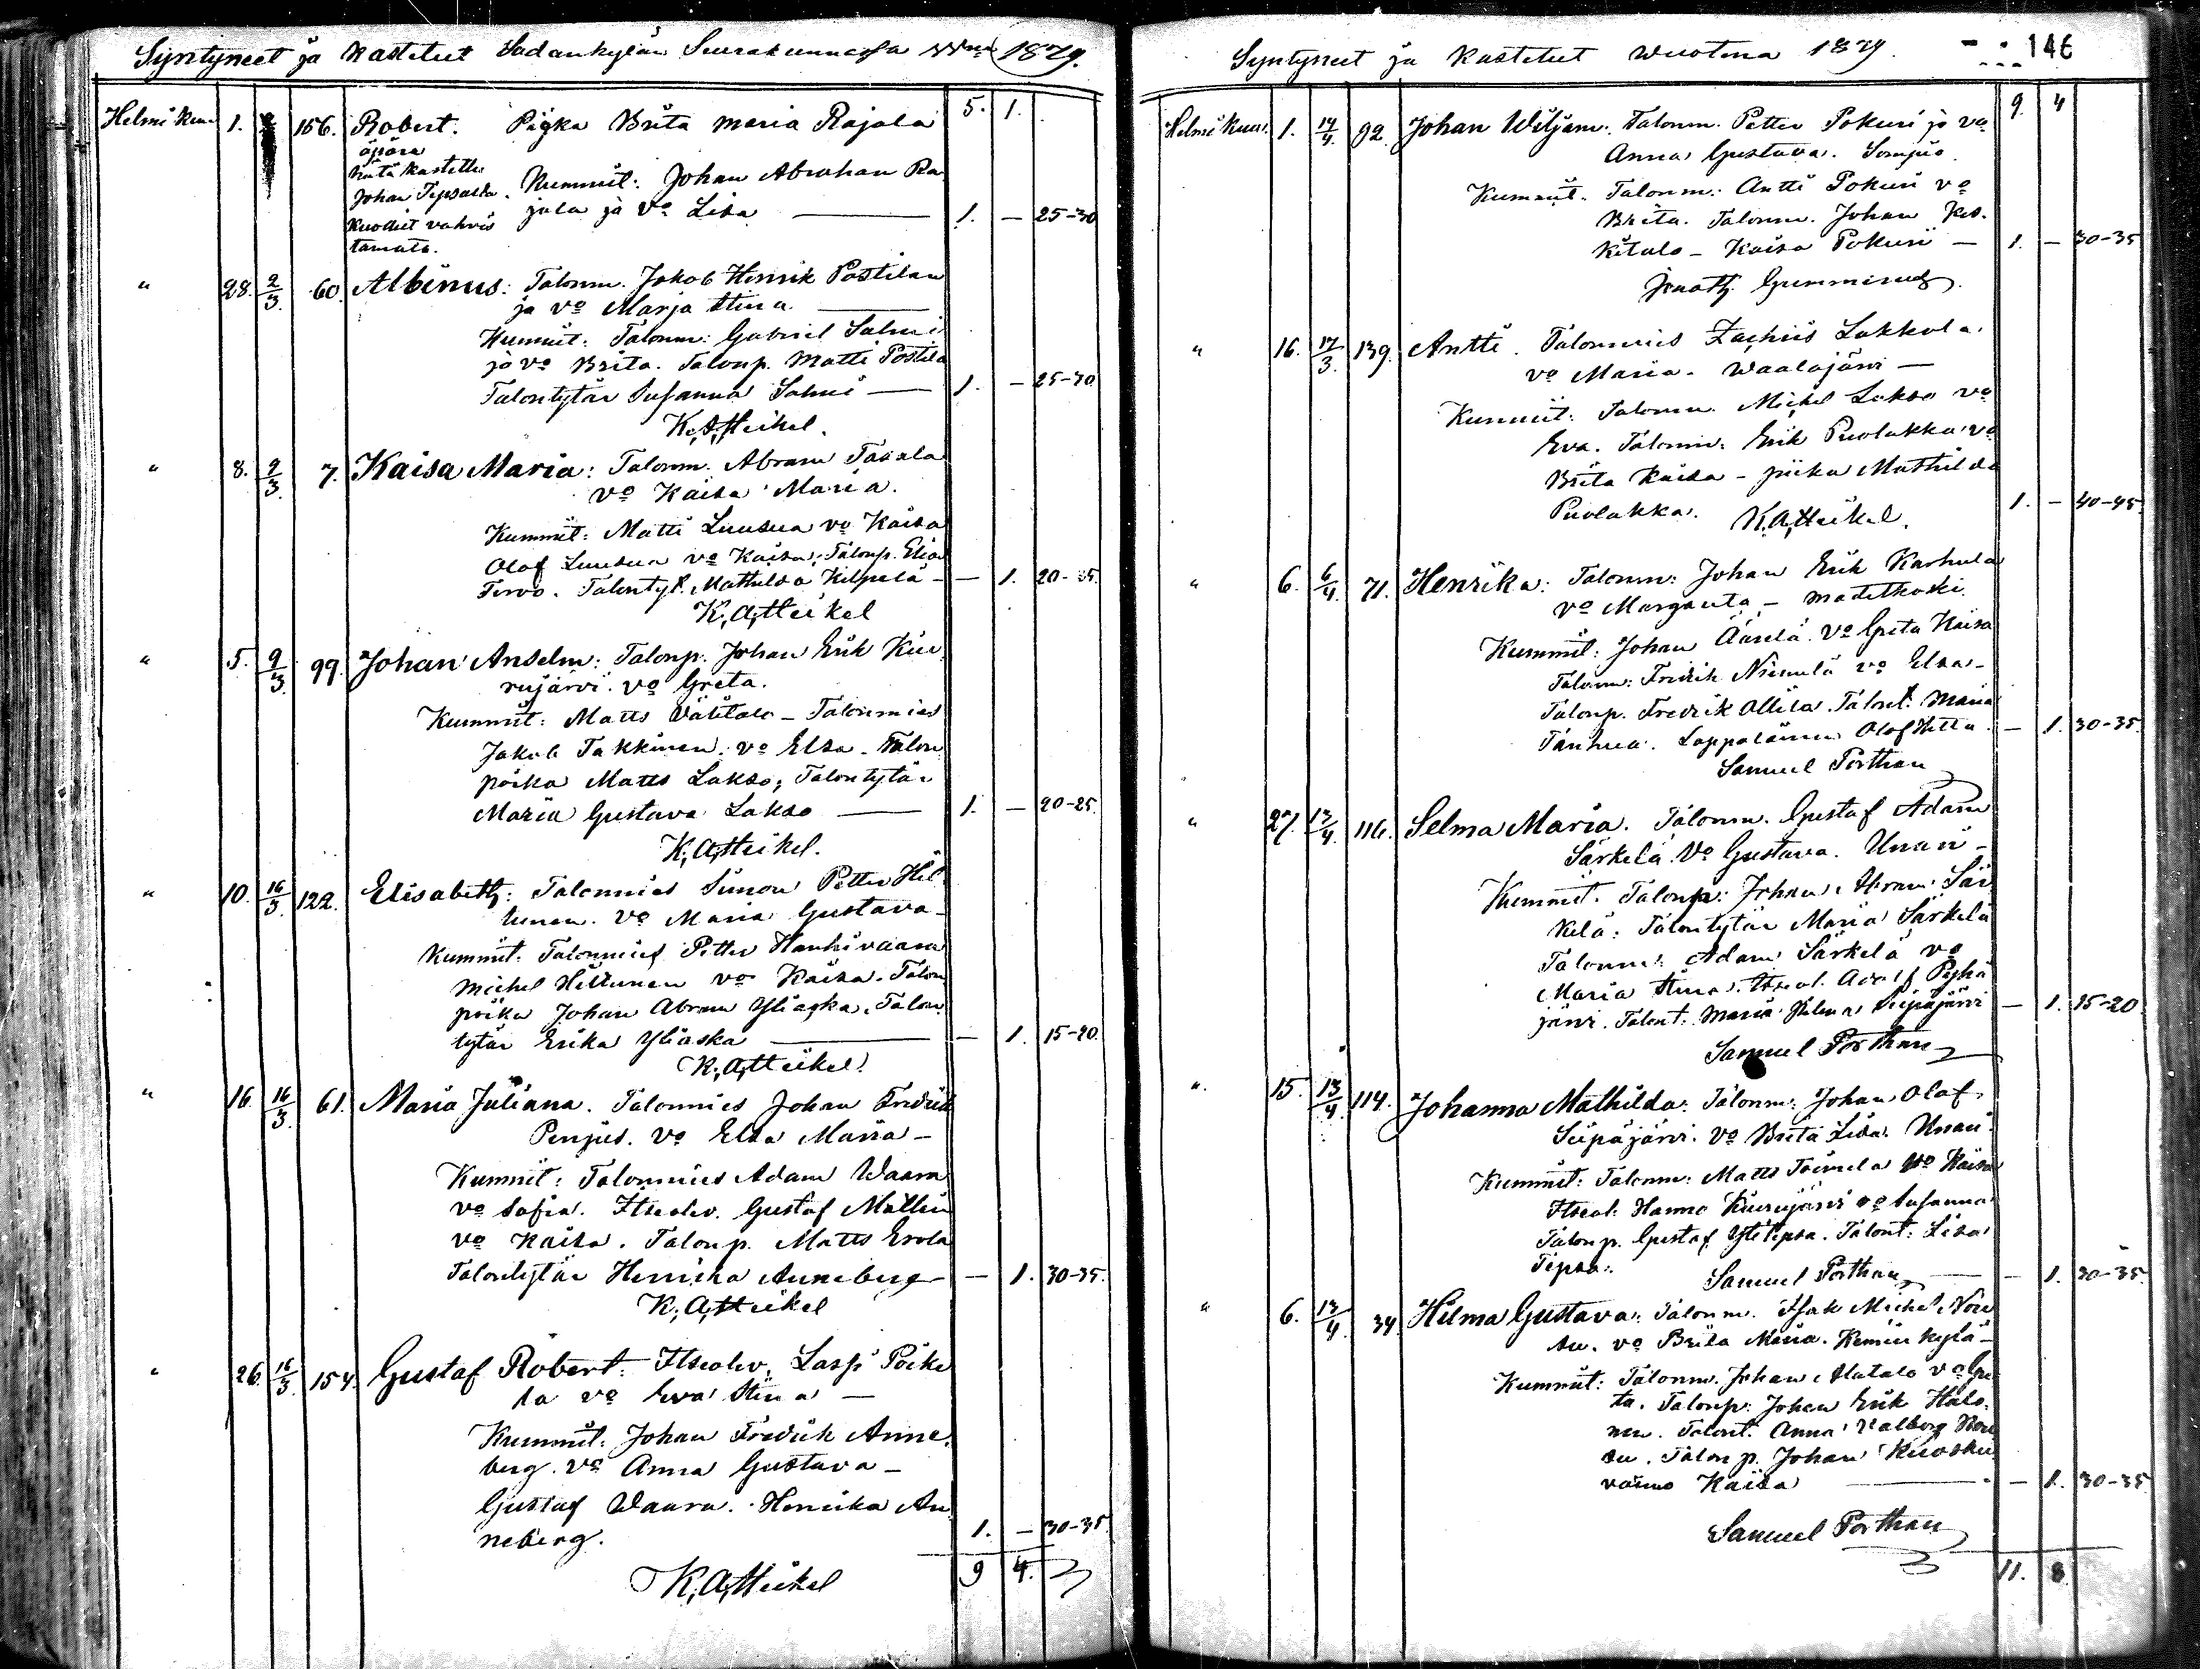 Syntyneet ja kastetut Sodankylän Seurakunnassa Wna 1879.
Helmi Kuu 1. 156. Robert. Pigka Brita Maria Rajala 5. 1.
äpärä
hätä kastettu
Johan Tepsalta. Kummit: Johan Abraham Ra
Kuollut vahvis jala ja vo Lisa — 1. — 25-30
tamata.
" 28. 2/3. 60. Albinus: Talonm. Jakob Henrik Postilan
ja vo Marja Stina.
Kummit: Talonm: Gabriel Salmi
ja vo Brita. Talonp. Matti Postila
Talontytär Susanna Salmi — 1. — 25-30
K.A.Heikel.
" 8. 9/3. 7. Kaisa Maria: Talonm. Abram Tasala
vo Kaisa Maria.
Kummit: Matti Luusua vo Kaisa
Olof Luusua vo Kaisa, Talonp. Elias
Tervo. Talontyt. Mathilda Kilpelä — — 1. 20-25.
K.A.Heikel
" 5. 9/3. 99. Johan Anselm: Talonp. Johan Erik Kiu
rujärvi. vo Greta.
Kummit: Matts Välitalo — Talonmies
Jakob Takkinen. vo Elsa. Talon
poika Matts Lakso, Talontytär
Maria Gustava Lakso — 1. — 20-25.
K.A.Heikel.
" 10. 16/3. 122. Elisabeth: Talonmies Simon Petter Hil
tunen. vo Maria Gustava —
Kummit: Talonmies Petter Hanhivaara
Michel Hiltunen vo Kaisa. Talon
poika Johan Abram Yliaska. Talon
tytär Erika Yliaska — — 1. 15-20.
K.A.Heikel.
" 16. 16/3. 61. Maria Juliana. Talonmies Johan Fredrik
Penjus. vo Elsa Maria —
Kummit: Talonmies Adam Waara
vo Sofia. Itseolev. Gustaf Mattin
vo Kaisa. Talonp. Matts Erola
Talontytär Henrika Anneberg — — 1. 30-35.
K.A.Heikel
" 26. 16/3. 154. Gustaf Robert: Itseolev. Lassi Poike
la vo Eva Stina —
Kummit: Johan Fredrik Anne
berg. vo Anna Gustava —
Gustaf Waara. Henrika An
neberg. 1. — 30-35.
K.A.Heikel 9 4.
Syntyneet ja Kastetut Wuotena 1879. 146
Helmi Kuu. 1. 14/4. 92. Johan Wiljam. Talonm. Petter Pokuri ja vo 9. 4
Anna Gustava. Sompio.
Kummit. Talonm: Antti Pokuri vo
Brita. Talonm. Johan Kes-
kitalo — Kaisa Pokuri — 1. — 30-35
" 16. 17/3. 139. Antti. Talonmies Zachris Lakkala.
vo Maria. Waalajärvi —
Kummit: Talonm. Michel Lakso vo
Eva. Talonm: Erik Puolakka vo
Brita Kaisa — piika Mathilda
Puolakka. 1. — 40-45.
K.A.Heikel.
" 6. 6/4. 71. Henrika: Talonm: Johan Erik Karhula
vo Margareta — Madetkoski.
Kummit: Johan Äärelä. vo Greta Kaisa
Talonm: Fredrik Niemelä vo Elsa —
Talonp. Fredrik Ollila. Talont. Maria
Tanhua. Lappalainen Olof Hetta — 1. 30-35.
Samuel Porthan
" 27. 13/4. 116. Selma Maria. Talonm. Gustaf Adam
Särkelä. vo Gustava. Unari —
Kummit. Talonp: Johan Abram Sär
kelä. Talontytär Maria Särkelä
Talonm: Adam Särkelä vo
Maria Stina. Itseol. Adolf Pyhä
järvi. Talont. Maria Helena Seipäjärvi — 1. 15-20
Samuel Porthan
". 15. 13/4. 114. Johanna Mathilda: Talonm: Johan Olof
Seipäjärvi. vo Brita Lisa. Unari.
Kummit: Talonm: Matts Toimela vo Kaisa
Itseol: Hannu Kiurujärvi vo Susanna
Talonp. Gustaf Ylitepsa. Talont: Lisa
Tepsa. — 1. 30-35
Samuel Porthan
" 6. 13/4. 34. Hilma Gustava: Talonm. Isak Michel Nou
su. vo Brita Maria. Kemin kylä —
Kummit: Talonm. Johan Alatalo vo Gre
ta. Talonp: Johan Erik Halo-
nen. Talont. Anna Walborg Nou
su. Talonp. Johan Kuosku
vaimo Kaisa — — 1. 30-35
Samuel Porthan
11. 8